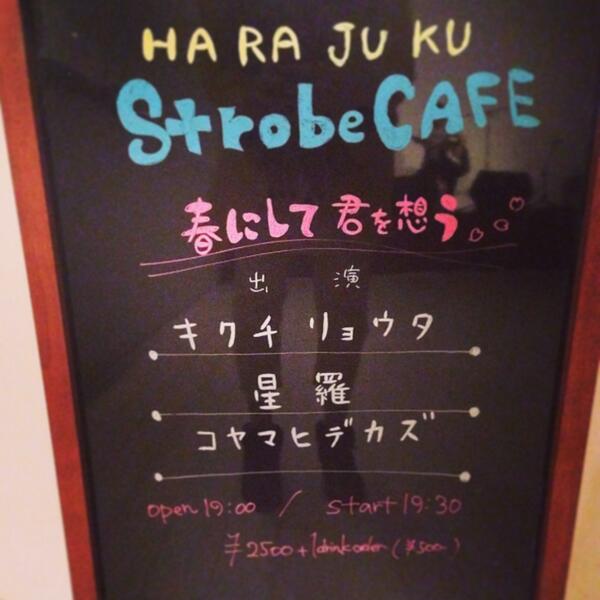 HARAJUKU
Strobe CAFE
春にして君を想う。。
出演
キクチリョウタ
星羅
コヤマヒデカズ
open 19:00 / start 19:30
¥2500+1drink order (¥500)